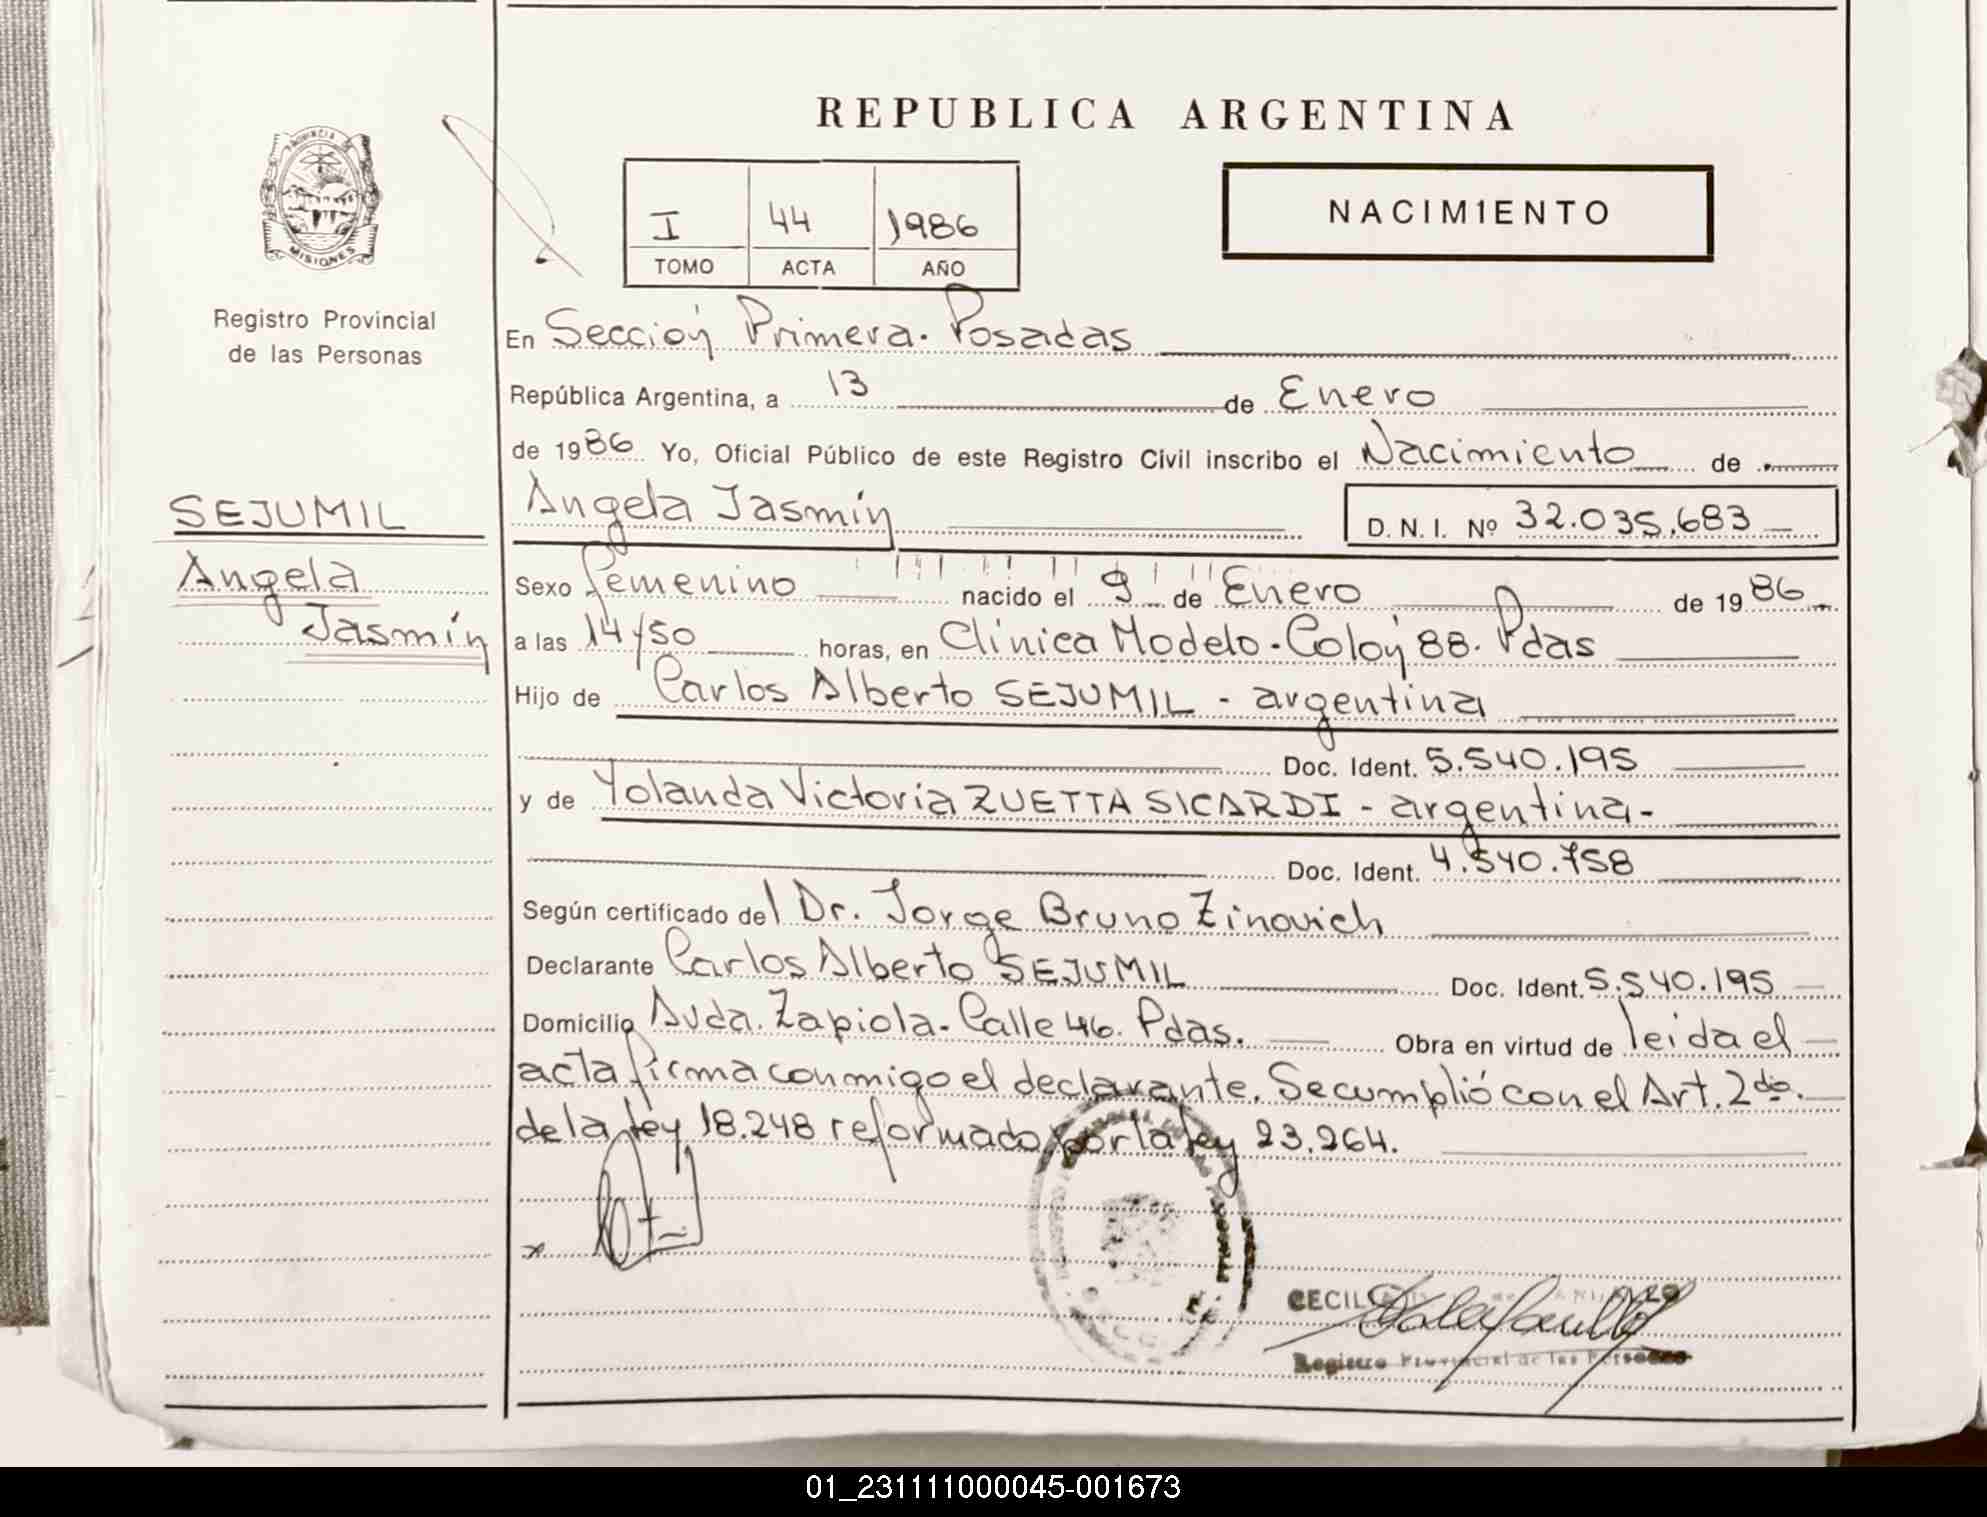 REPUBLICA ARGENTINA
PROVINCIA
MISIONES
Registro Provincial
de las Personas
I 44 1986
TOMO ACTA AÑO
NACIMIENTO
En Sección Primera. Posadas
República Argentina, a 13 de Enero
de 1986 Yo, Oficial Público de este Registro Civil inscribo el Nacimiento de
SEJUMIL
Angela
Jasmín
Angela Jasmín
D. N. I. Nº 32.035.683
Sexo femenino nacido el 9 de Enero de 1986.
a las 14/50 horas, en Clínica Modelo - Colón 88. Pdas
Hijo de Carlos Alberto SEJUMIL - argentina
Doc. Ident. 5.540.195
y de Yolanda Victoria ZUETTA SICARDI - argentina -
Doc. Ident. 4.540.758
Según certificado del Dr. Jorge Bruno Zinovich
Declarante Carlos Alberto SEJUMIL Doc. Ident. 5.540.195
Domicilio Avda. Zapiola - Calle 46. Pdas. Obra en virtud de leida el
acta firma conmigo el declarante. Se cumplió con el Art. 2do.
de la ley 18.248 reformado por la ley 23.264.
Registro Provincial de las Personas
01_231111000045-001673